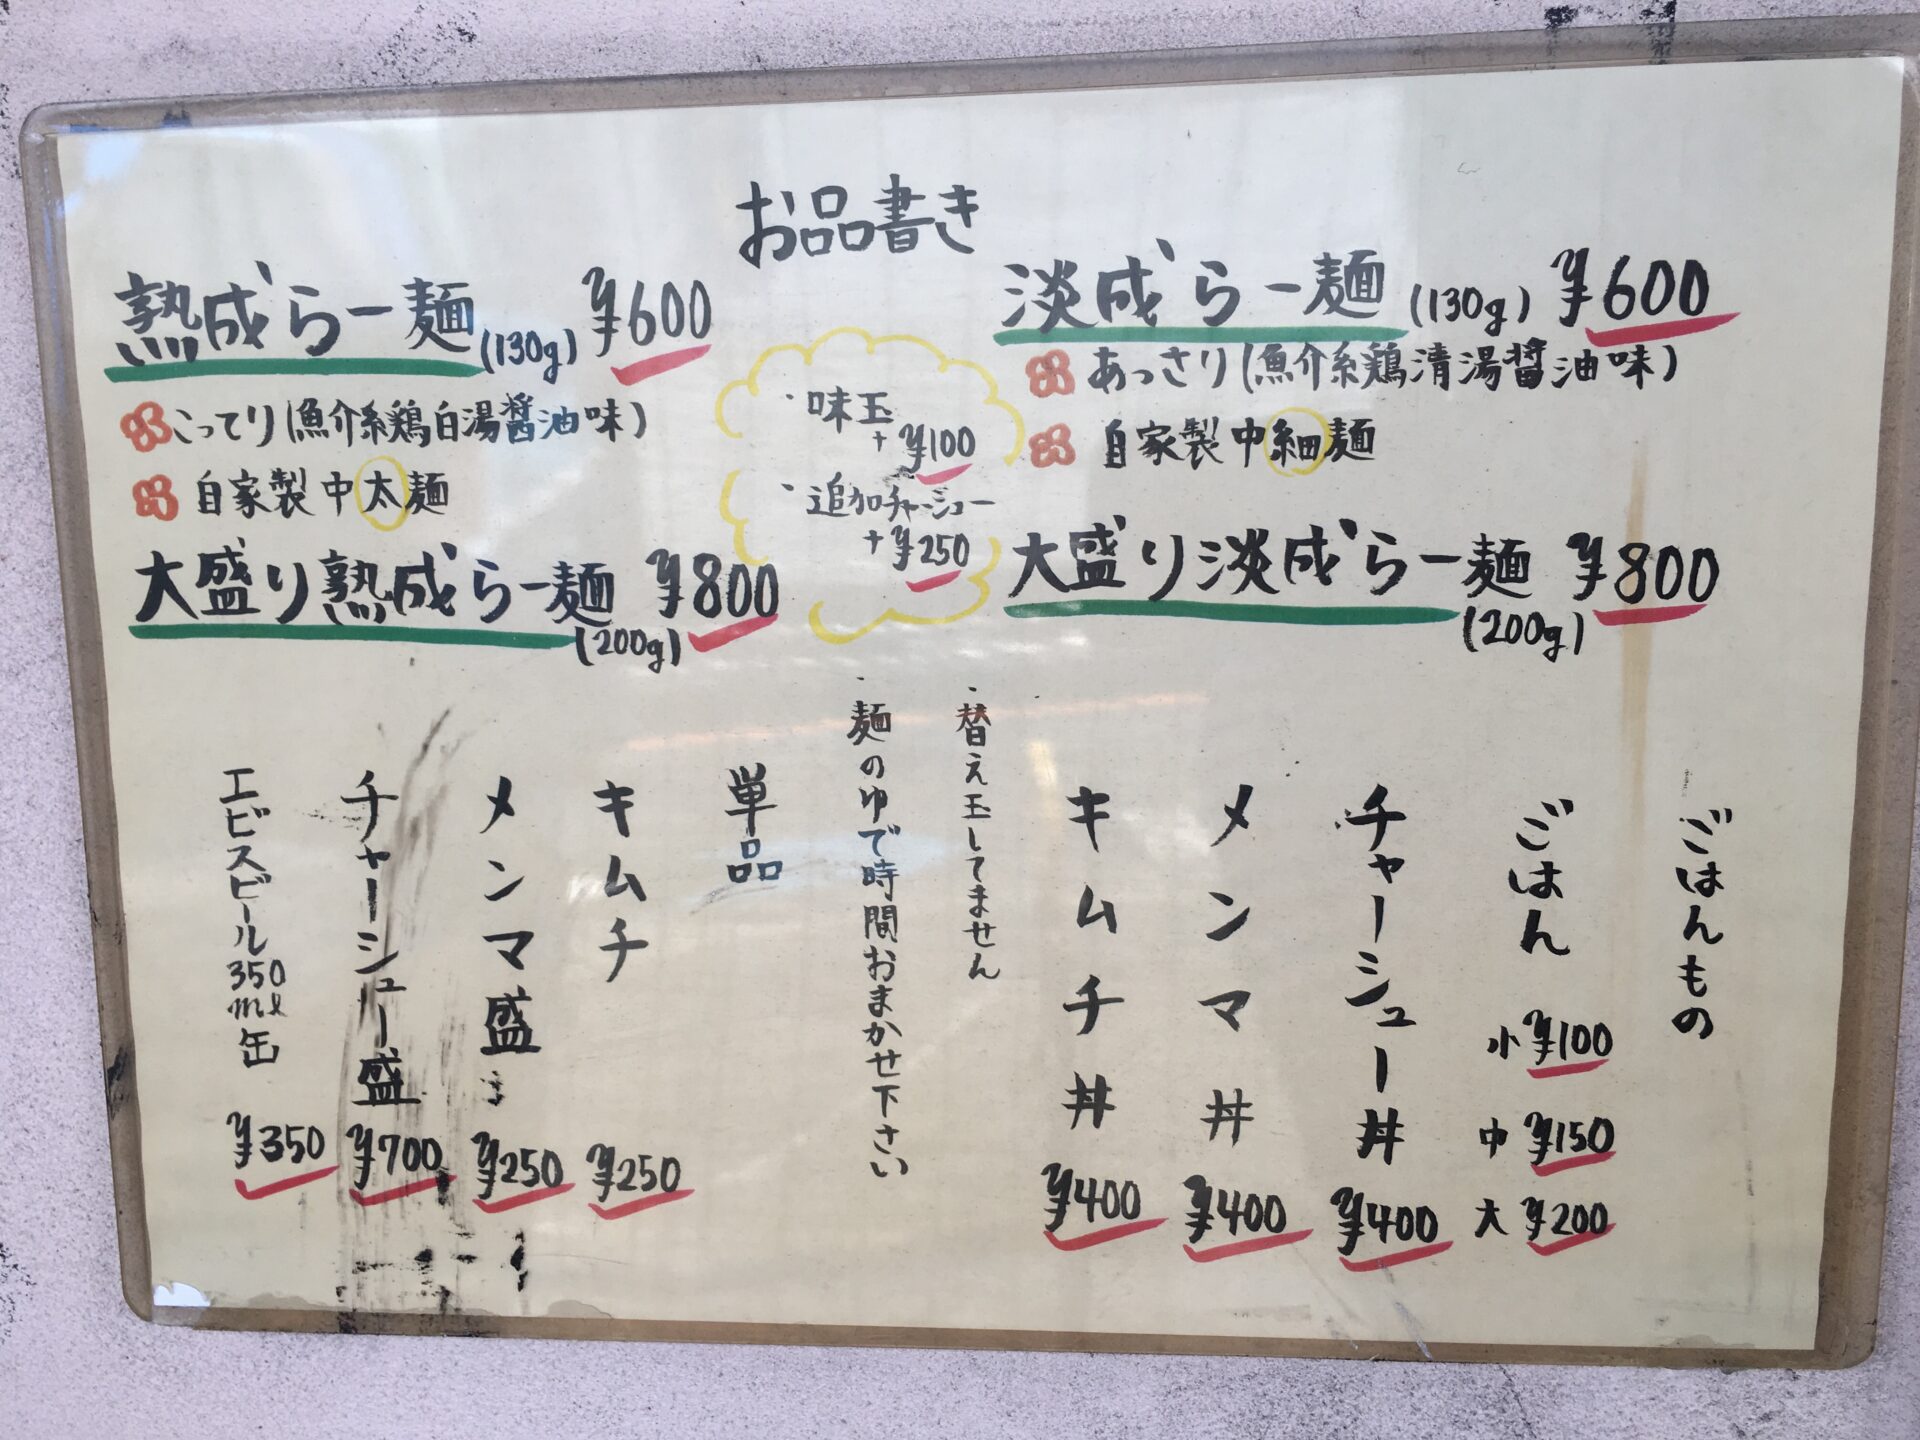 お品書き
熟成らー麺 (130g) ¥600
こってり(魚介系鶏白湯醤油味)
自家製中太麺
大盛り熟成らー麺 ¥800
(200g)
・味玉
+ ¥100
・追加チャーシュー
+ ¥250
淡成らー麺 (130g) ¥600
あっさり(魚介系鶏清湯醤油味)
自家製中細麺
大盛り淡成らー麺 ¥800
(200g)
ごはんもの
ごはん 小 ¥100
中 ¥150
大 ¥200
チャーシュー丼 ¥400
メンマ丼 ¥400
キムチ丼 ¥400
・替え玉してません
・麺のゆで時間おまかせ下さい
単品
キムチ ¥250
メンマ盛 ¥250
チャーシュー盛 ¥700
エビスビール350ml缶 ¥350